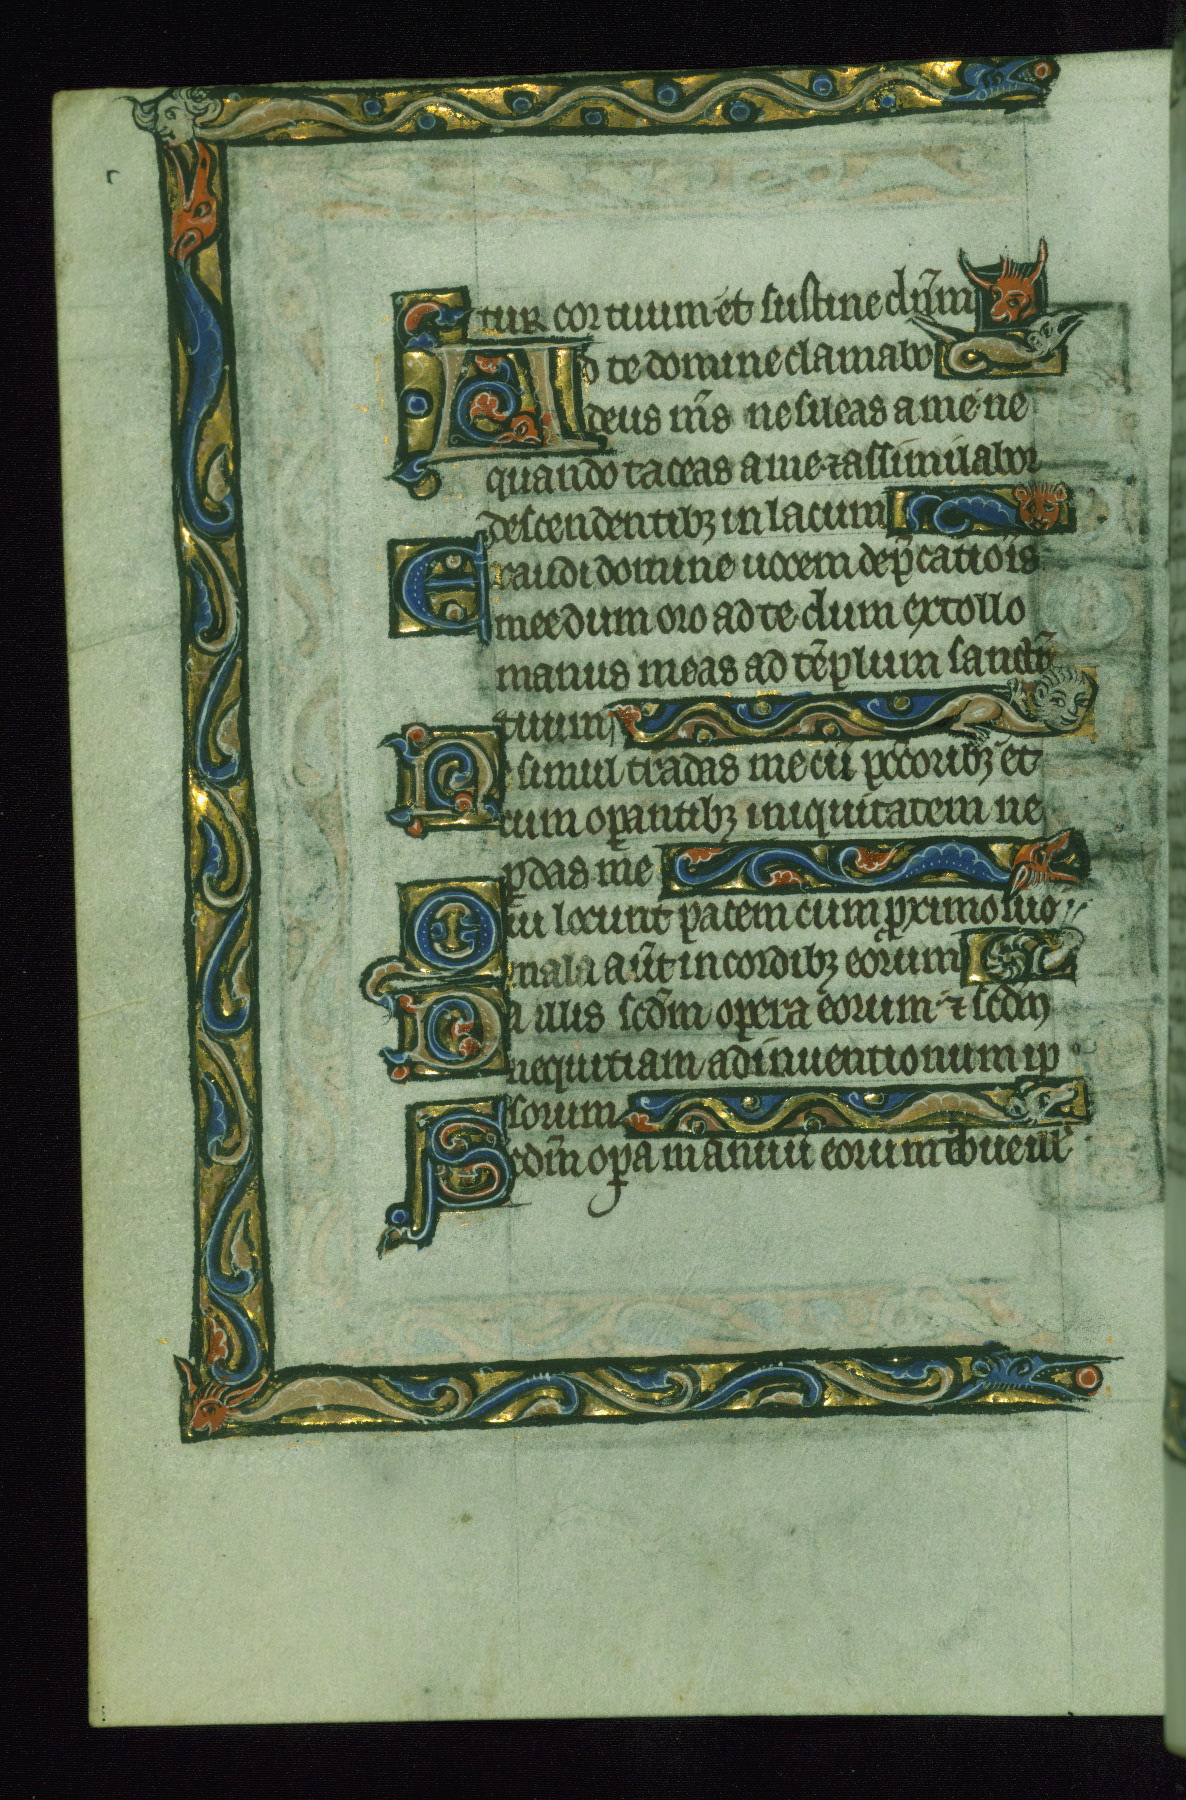 etur cor tuum et sustine dñm
Ad te domine clamabo
deus m̃s ne sileas a me ne
quando taceas a me ⁊ assimilabor
descendentibꝫ in lacum
Exaudi domine uocem dep̃catiõis
mee dum oro ad te dum extollo
manus meas ad tẽplum sanctũ
tuum
Ne simul tradas me cũ peccoribꝫ et
cum oꝑantibꝫ iniquitatem ne
ꝑdas me
Qui locunt̃ pacem cum ꝓximo suo
mala aũt in cordibꝫ eorum
Da illis scd̃m opera eorum ⁊ scd̃m
nequitiam adinuentionum ip
sorum
Scd̃m oꝑa manuũ eorum tribue ill̃